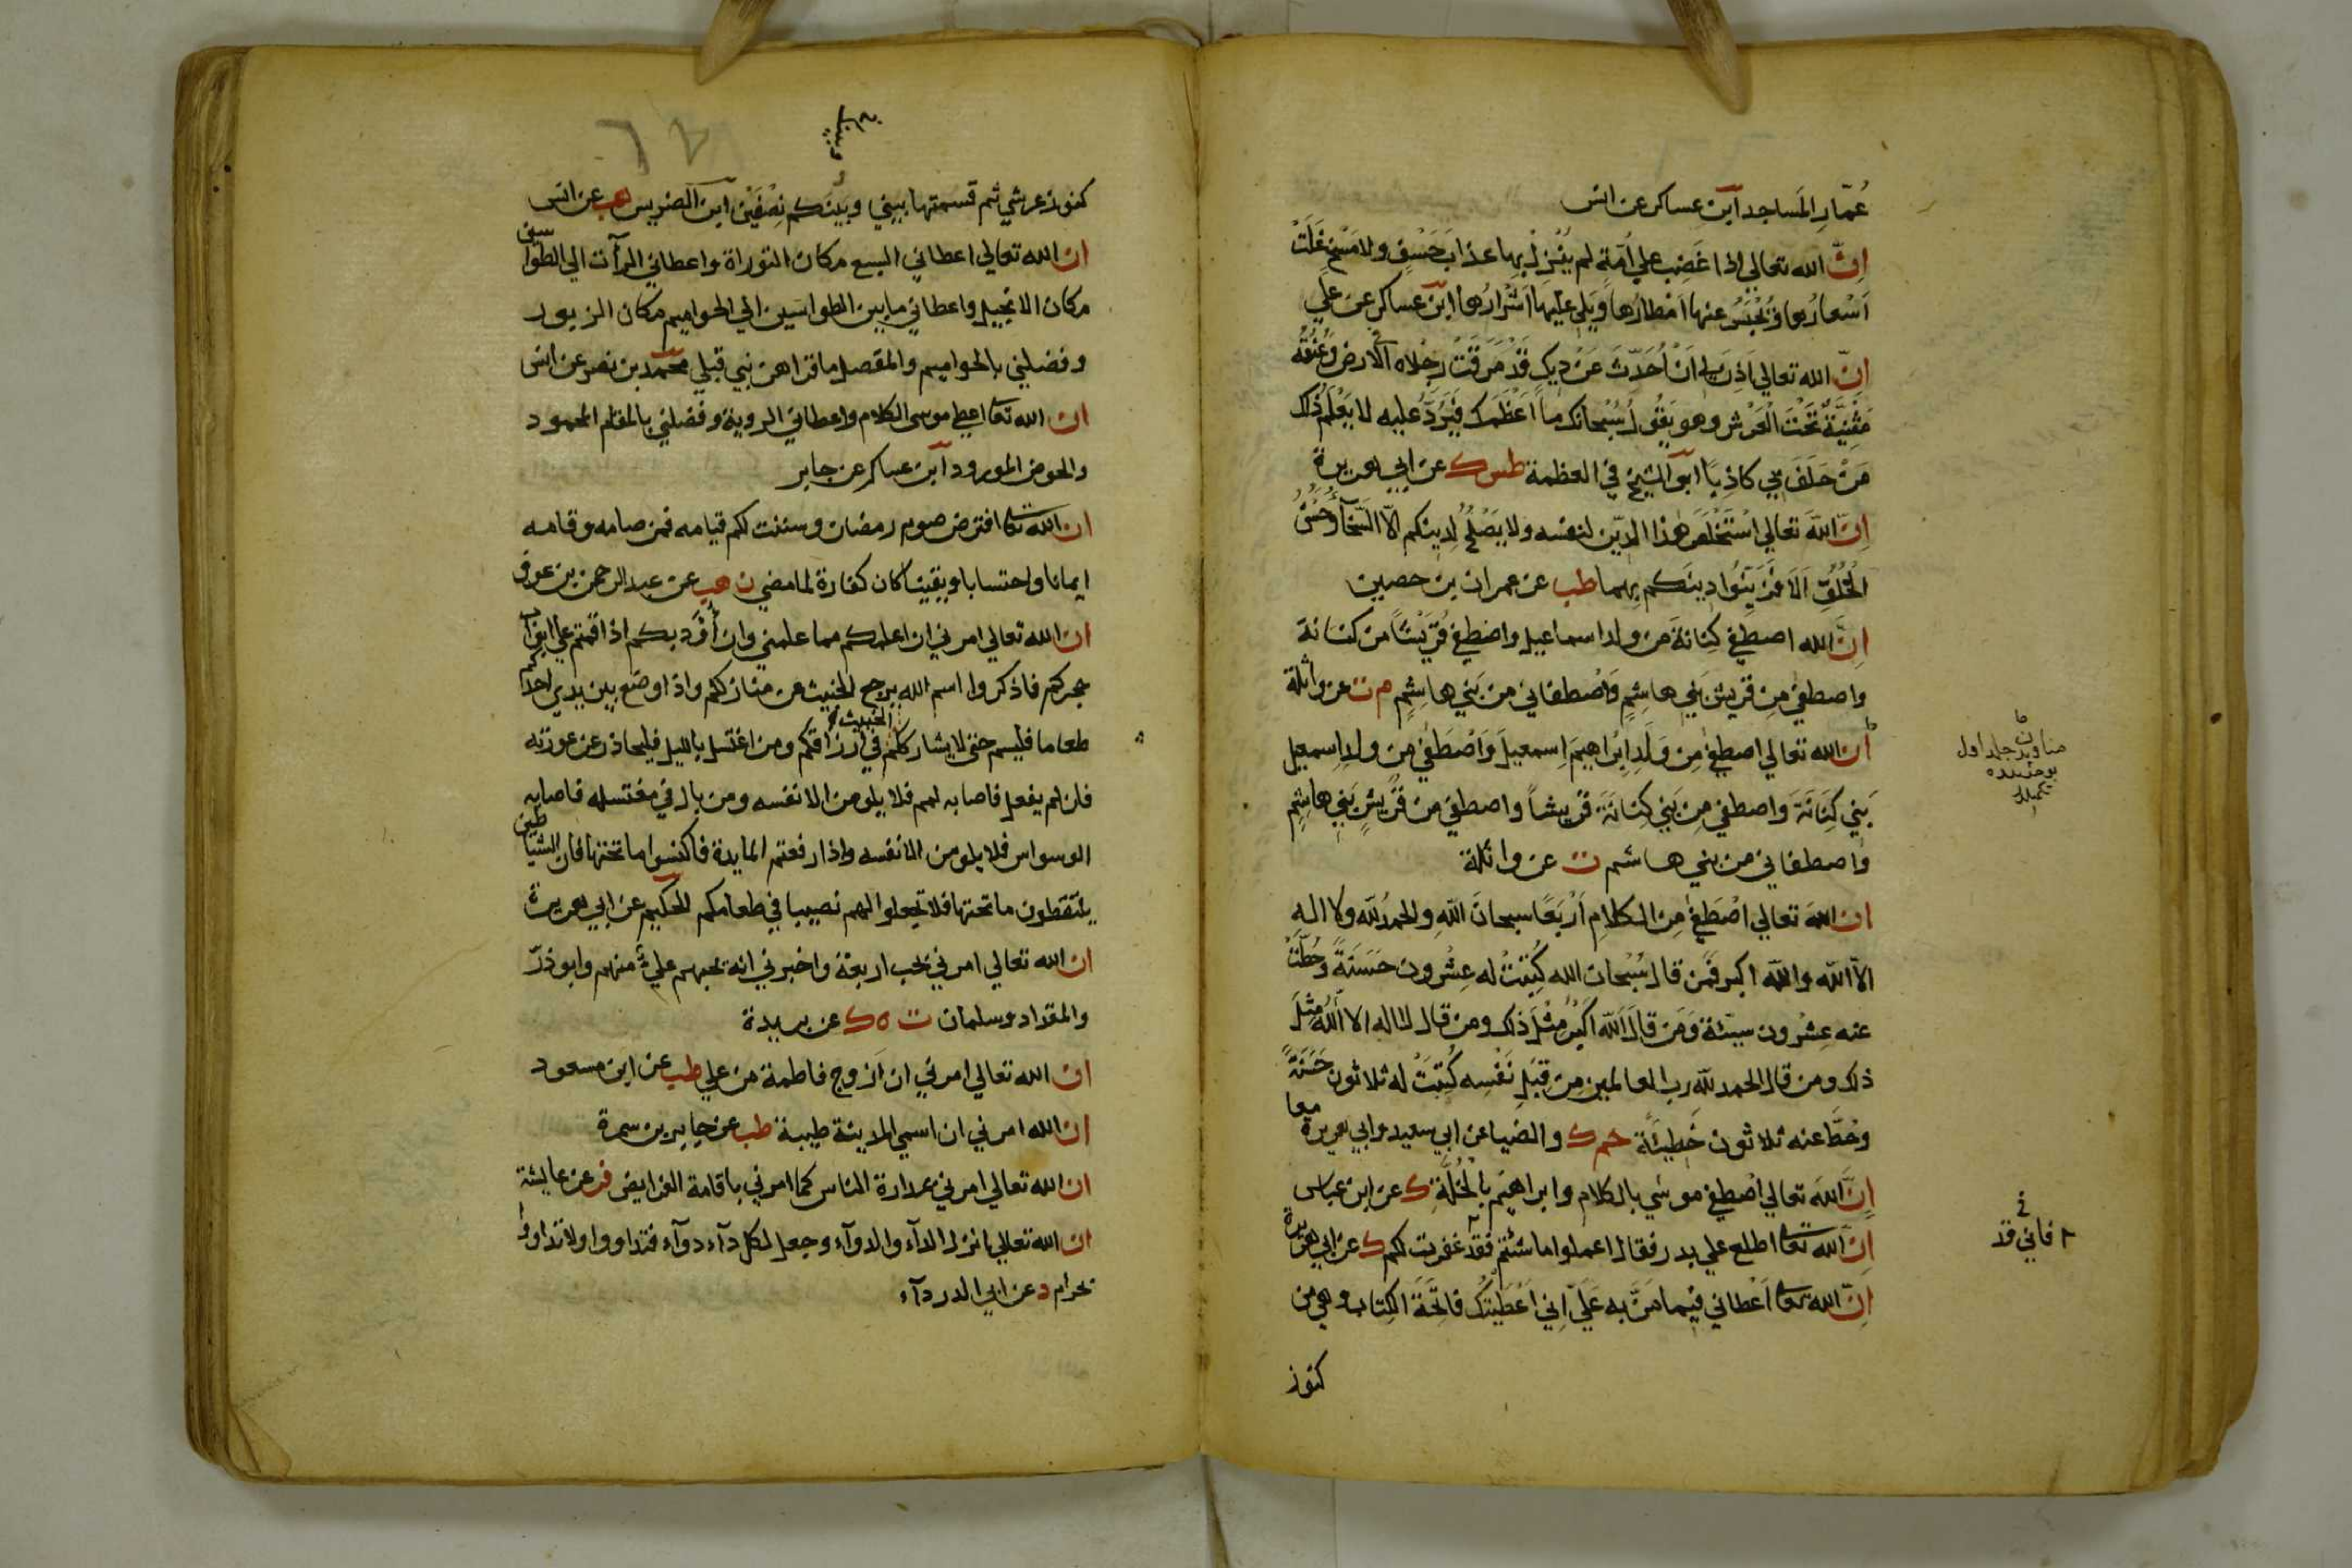 عُمّارِ المَساجدِ ابن عساكر عن انس
اِنَّ الله تعالي اذا غَضِبَ علي اُمّةٍ لم يُنْزِلْ بها عذابَ خَسْفٍ ولا مَسْخٍ غَلَتْ
اَسْعارُها وَيُحْبَسُ عنها اَمْطارُها وَيَلي عليها اَشْرارُها ابن عساكر عن علي
اِنَّ الله تعالي اَذِنَ لي اَنْ اُحَدّثَ عَنْ دِيكٍ قَدْ مَرَقَتْ رِجْلاه الارض وَعُنُقُهُ
مَثْنِيَّةٌ تَحْتَ الْعَرْشِ وهو يَقُولُ سُبْحانَك ما اَعْظَمَكَ فَيَرُدُّ عليه لا يَعْلَمُ ذلك
مَنْ حَلَفَ بي كاذِبًا ابو الشيخ في العظمة طس ك عن ابي هريرة
اِنَّ اللهَ تعالي اسْتَخْلَصَ هٰذا الدِّين لنفسه ولا يَصْلُحُ لِدينكم الّا السَّخآءُ وَحُسْنُ
الْخُلُقِ اَلَا فَزَيِّنُوا دينَكم بِهما طب عن عمران بن حصين
اِنَّ الله اصطفي كِنانةَ من ولد اسماعيل واصْطفي قُرَيْشًا من كنانة
واصطفي مِن قريش بَني هاشِمٍ وَاصْطفاني من بَني هاشِمٍ م ت عن واثلة
ان الله تعالي اصطفي مِن وَلَدِ اِبْراهيمَ اِسمعيلَ وَاصْطَفي مِن ولدِ اِسمعيل
بَني كِنَانَةَ وَاصطفي مِن بَني كِنانَةَ قُرَيشاً واصطفي مِن قُرَيْشٍ بَني هاشِمٍ
واصطفاني من بني هاشم ت عن واثلة
ان اللهَ تعالي اصْطَفي مِن الكلامِ اَرْبَعًا سبحانَ اللهِ والحمدُ للّه ولا الهَ
الّا الله والله اكبر فَمن قال سُبْحانَ الله كُتِبَتْ له عِشْرون حَسَنَةً وَحُطَّتْ
عنه عِشْرون سيّئة وَمَن قالَ اللّه اَكْبَرُ مِثْلَ ذلك ومن قال لا اله الّا اللهُ مِثْلَ
ذلك ومن قال الحمد لله رب العالمين مِن قِبَلِ نَفْسِه كُتِبَتْ له ثلاثون حَسَنَةً
وَحُطَّ عنه ثلاثون خَطيئَةً حم ك والضياء عن ابي سعيد وابي هريرة معا
اِنَّ اللهَ تعالي اصْطفي موسي بالكلام وابراهيم بِالْخُلّةِ ك عن ابن عباس
اِنَّ اللهَ تعا اطلع علي بدر فقال اعملوا ما شئتم فقد غفرت لكم ك عن ابي هريرة
اِنَّ الله تعا اَعْطاني فيما مَنَّ به عَلَيَّ اِني اَعْطَيْتُكَ فاتِحَةَ الكِتابِ وهي من
كنوز
مناوينك جلد اول
بو حديثده
فاني قد
كنوز عرشي ثم قسمتها بيني وبينكم نِصْفَيْنِ ابن الضريس هب عن انس
ان الله تعالي اعطاني السبع مكان التوراة واعطاني الرآات الي الطواسين
مكان الانجيل واعطاني ما بين الطواسين الي الحواميم مكان الزبور
وفضلني بالحواميم والمفصل ما قراهن نبي قبلي محمد بن نصر عن انس
ان الله تعا اعطي موسي الكلام واعطاني الروية وفضلني بالمقام المحمود
والحوض المورود ابن عساكر عن جابر
ان الله تعا افترض صوم رمضان وسننت لكم قيامه فمن صامه وقامه
ايمانا واحتسابا ويقينا كان كفارة لما مضي ن هب عن عبد الرحمن بن عوف
ان الله تعالي امرني ان اعلمكم مما علمني وان اُؤَدبكم اذا قمتم علي ابواب
حجركم فاذكروا اسم الله يرجع الخبيث عن منازلكم واذا وضع بين يدي احدكم
طعاما فليسم حتي لا يشارككم الخبيث في ارزاقكم ومن اغتسل بالليل فليحاذر عن عورته
فان لم يفعل فاصابه لمم فلا يلومن الا نفسه ومن بال في مغتسله فاصابه
الوسواس فلا يلومن الا نفسه واذا رفعتم المايدة فاكنسوا ما تحتها فان الشياطين
يلتقطون ما تحتها فلا تجعلوا لهم نصيبا في طعامكم الحكيم عن ابي هريرة
ان الله تعالي امرني بحب اربعة واخبرني انه يحبهم علي منهم وابو ذرّ
والمقداد وسلمان ت ه ك عن بريدة
ان الله تعالي امرني ان اَزوج فاطمة من علي طب عن ابن مسعود
ان الله امرني ان اسمي المدينة طيبة طب عن جابر بن سمرة
ان الله تعالي امرني بمدارة الناس كما امرني باقامة الفرايض فر عن عايشة
ان الله تعالي انزل الدآء والدوآء وجعل لكل دآء دوآء فتداووا ولا تداووا
بحرام د عن ابي الدردآء